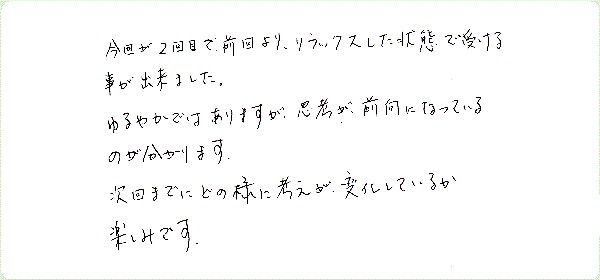 今回が2回目で、前回より、リラックスした状態で受ける
事が出来ました。
ゆるやかではありますが、思考が、前向になっている
のが分かります。
次回までにどの様に考えが、変化しているか
楽しみです。